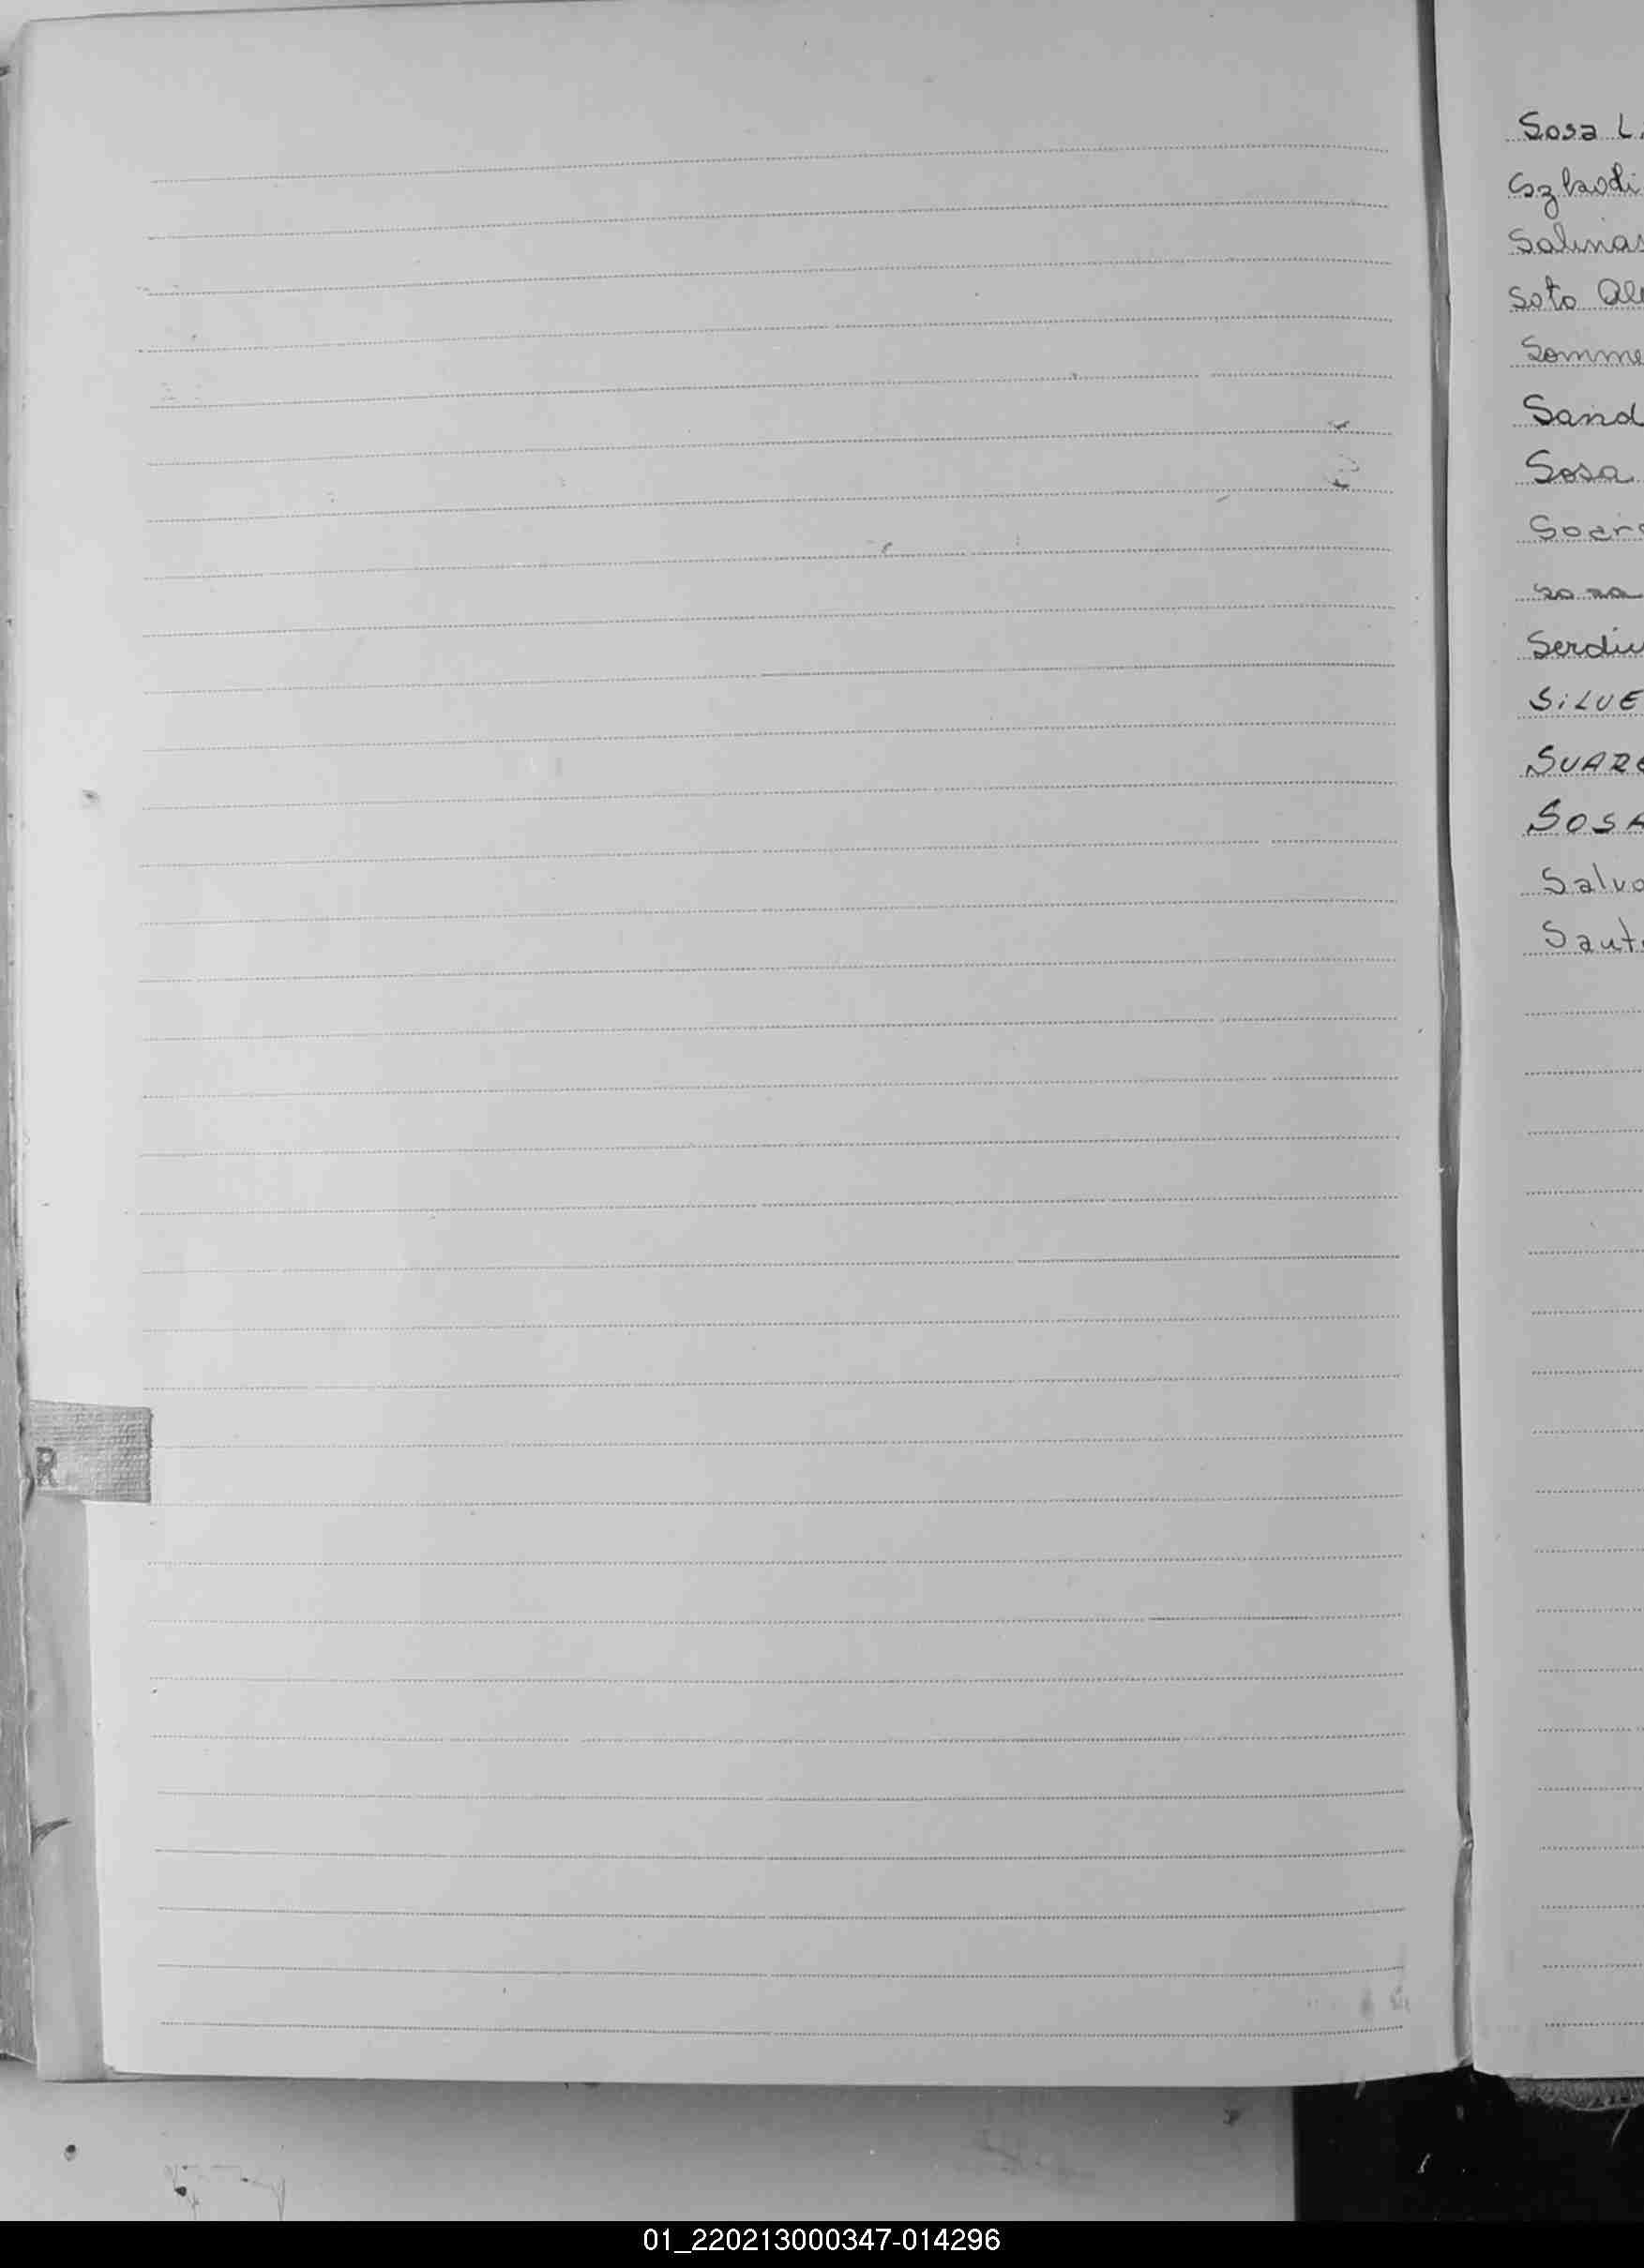 Sosa L.
Szkodi
Salinas
Soto Al
Somme
Sand
Sosa
Soar
Serdiu
SiLVE
SUARE
SOSA
Salva
Sant
R
01_220213000347-014296